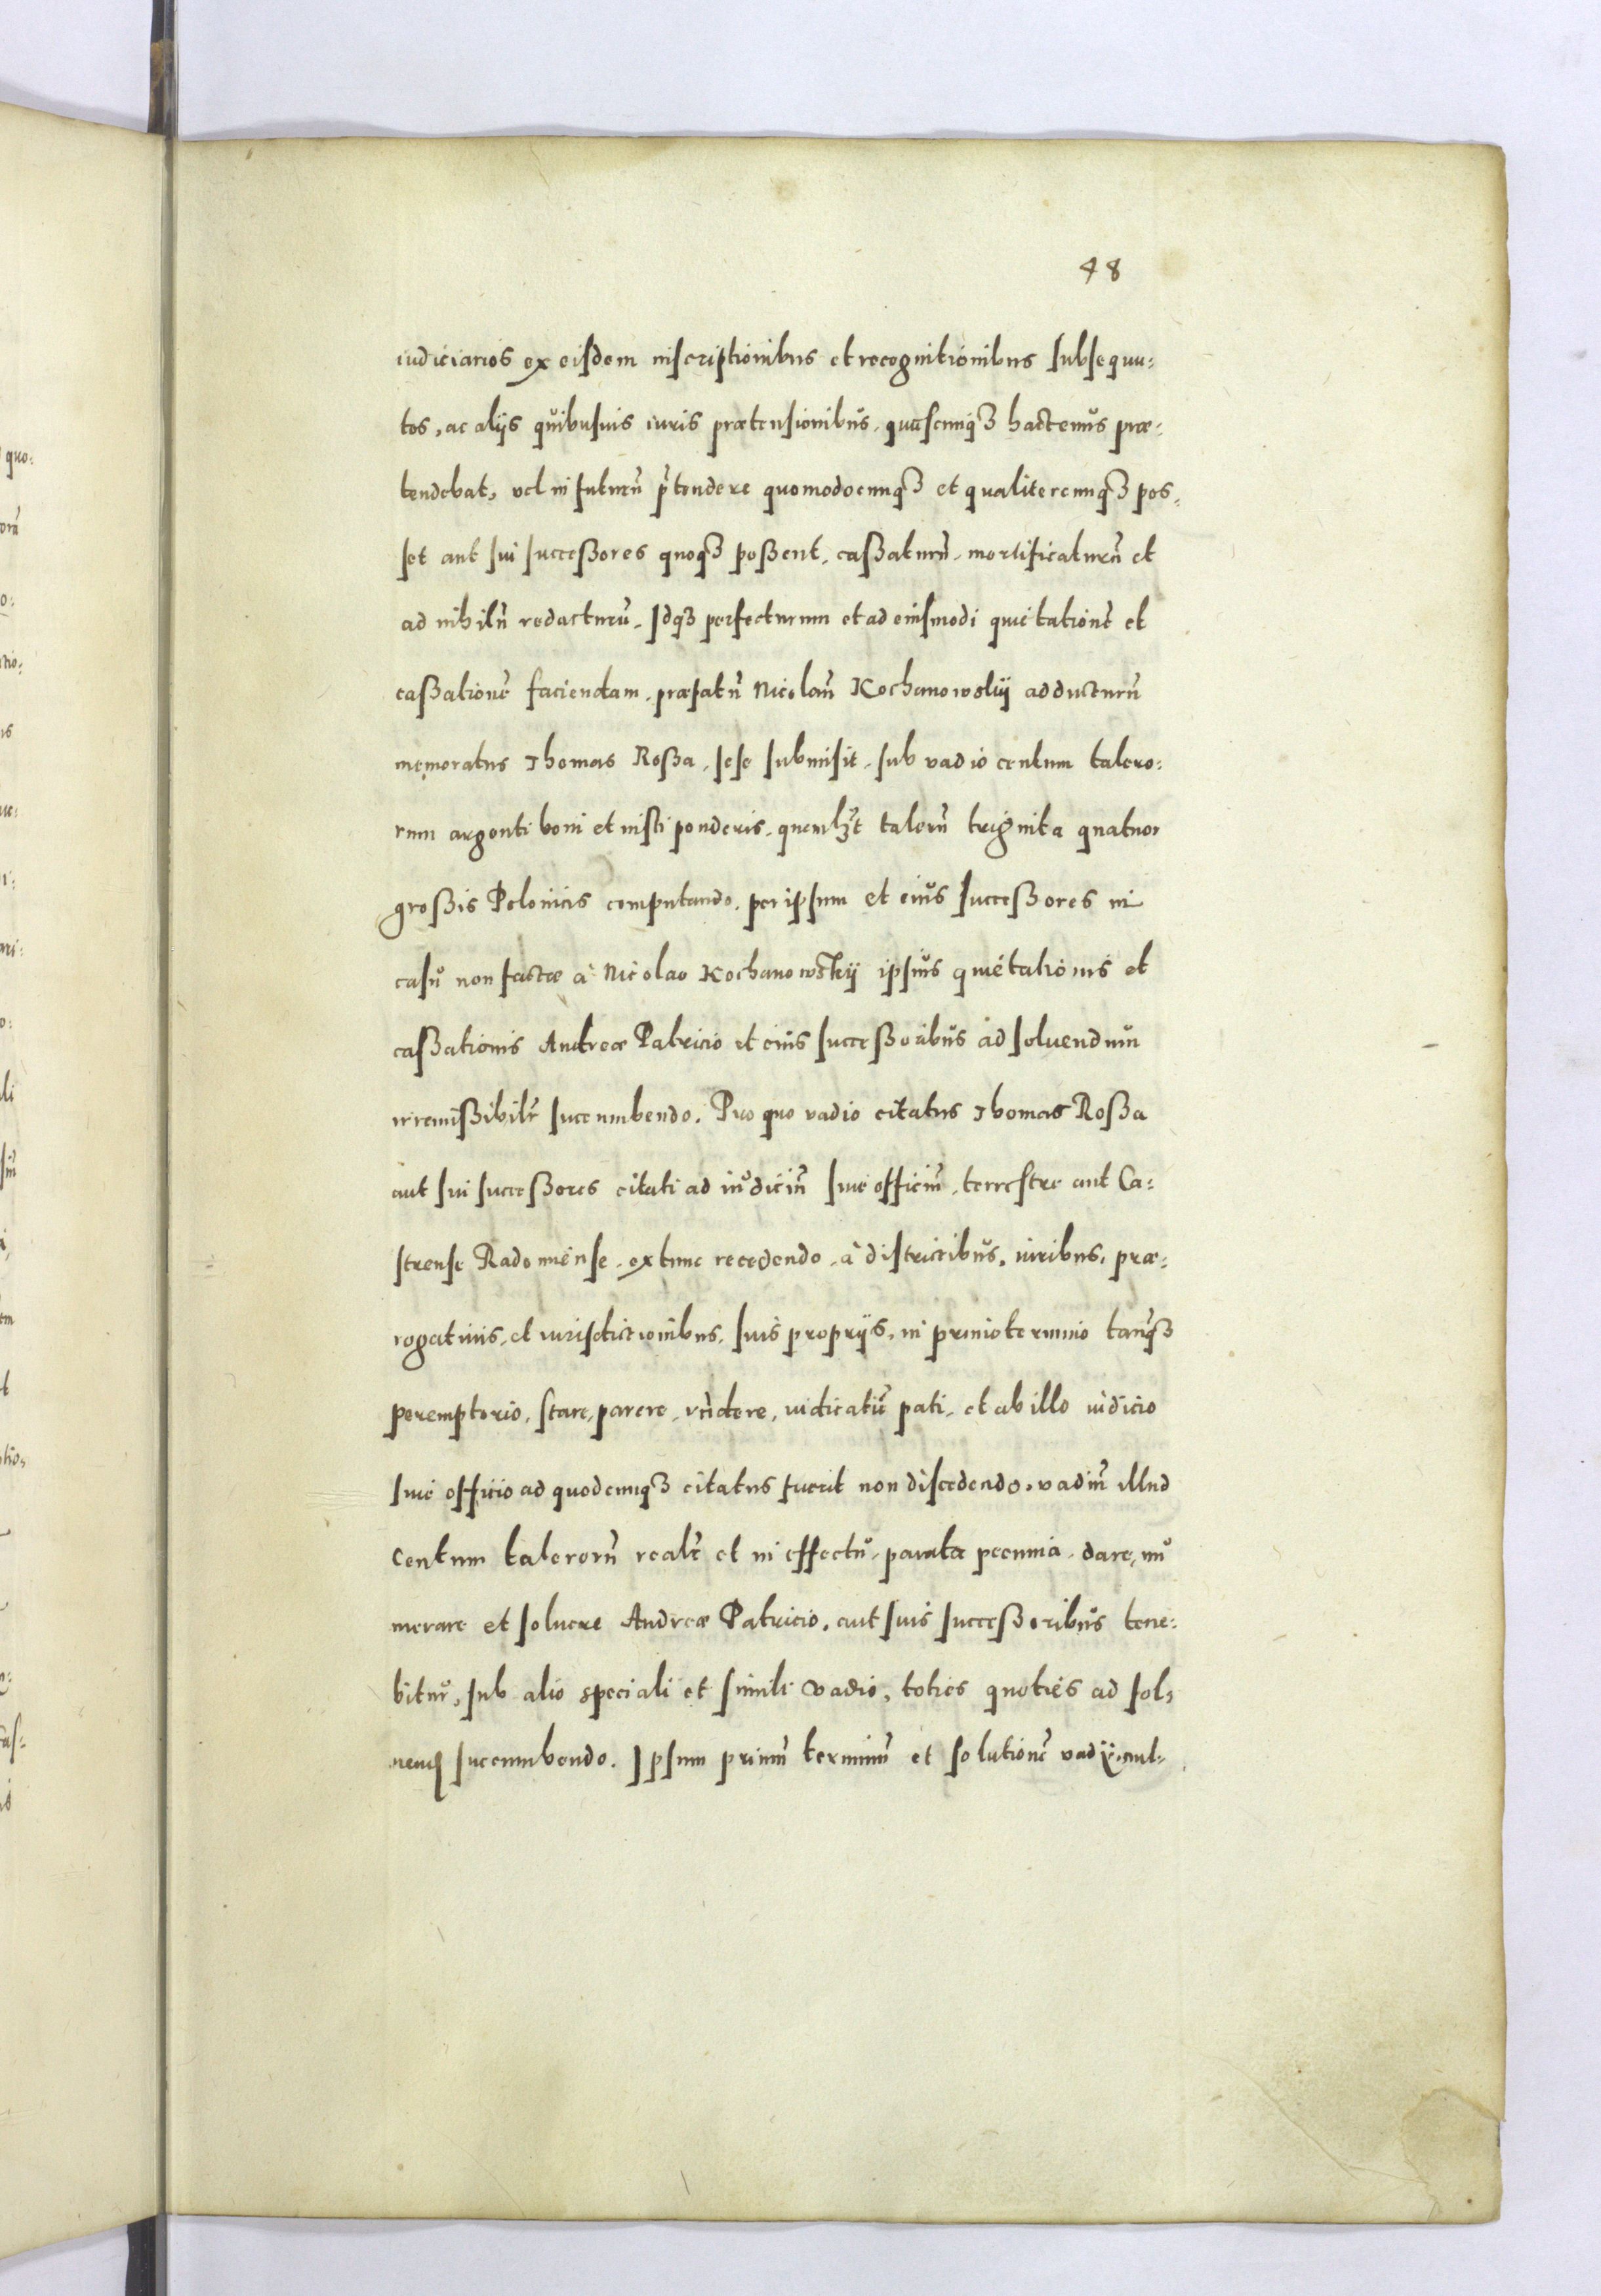 48
iudiciarios ex eisdem inscriptionibus et recognitionibus subsequu:
tos, ac alijs quibusuis iuris prætensionibus, quascunq3 hactenus præ:
tendebat, vel in futurũ p̃tendere quomodocunq3 et qualitercunq3 pos,
set aut sui successores quoq3 possent, cassaturũ, mortificaturũ et
ad nihilũ redacturũ, Idq3 perfecturum et ad eiusmodi quietationẽ et
cassationẽ faciendam, præfatũ Nicolaũ Kochanowskij adducturũ
memoratus Thomas Rossa, sese submisit, sub vadio centum talero:
rum argenti boni et iusti ponderis, quemlꝫt talerũ triginta quatuor
grossis Polonicis computando, per ipsum et eius successores in
casu non factæ à Nicolao Kochanowskij ipsius quietationis et
cassationis Andreæ Patricio et eius successoribus ad soluendum
irremissibilr̃ succumbendo. Pro quo vadio citatus Thomas Rossa
aut sui successores citati ad iudiciũ siue officiũ, terrestre aut Ca:
strense Radomiense, extunc recedendo, à districtibus, iuribus, præ:
rogatiuis, et iurisdictionibus, suis proprijs, in primo termino tanq̃3
peremptorio, stare, parere, rñdere, iudicatũ pati, et ab illo iudicio
siue officio ad quodcunq3 citatus fuerit non discedendo, vadiũ illud
Centum talerorũ realr̃ et in effectu, parata pecunia, dare, nu
merare et soluere Andreæ Patricio, aut suis successoribus tene:
bitur, sub alio speciali et simili vadio, toties quoties ad sol,
uend̃ succumbendo. Ipsum primũ terminũ et solutionẽ vadij, nul-